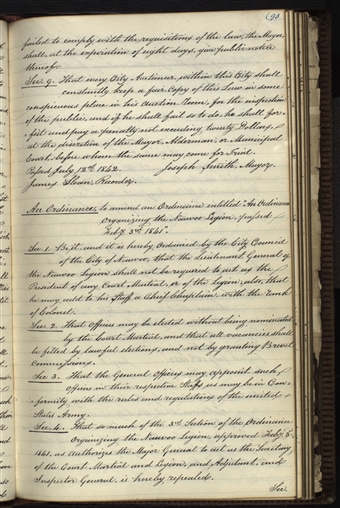 (93
failed to comply with the requisitions of the law, the Mayor
shall, at the expiration of eight days, give public notice
thereof.
Sec. 9. That every City Auctioneer, within this City shall
constantly keep a fair Copy of this Law in some
conspicuous place in his Auction Room, for the inspection
of the public, and if he shall fail so to do, he shall for-
feit and pay a penalty not exceeding twenty Dollars,
at the discretion of the Mayor, Alderman, or Municipal
Court, before whom the same may come for Trial.
Passed July 12th 1842. Joseph Smith, Mayor.
James Sloan, Recorder.
An Ordinance, to amend an Ordinance entitled "An Ordinance
Organizing the Nauvoo Legion, passed
Feby 3rd 1841".
Sec. 1. Be it, and it is hereby Ordained by the City Council
of the City of Nauvoo, that the Lieutenant General of
the Nauvoo Legion shall not be required to act as the
President of any Court Martial, or of the Legion; also, that
he may add to his Staff a Chief Chaplain, with the rank
of Colonel.
Sec. 2. That Officers may be elected without being nominated
by the Court Martial, and that all vacancies shall
be filled by lawful elections, and not by granting Brevet
Commissions.
Sec. 3. That the General Officers may appoint such
Officers in their respective Staffs, as may be in Con-
formity with the rules and regulations of the united
States Army.
Sec. 4. That so much of the 3rd Section of the Ordinance
Organizing the Nauvoo Legion, approved Feby 8
1841, as Authorizes the Major General to act as the Secretary
of the Court Martial and Legion, and Adjutant, and
Inspector General, is hereby repealed.
Sec.